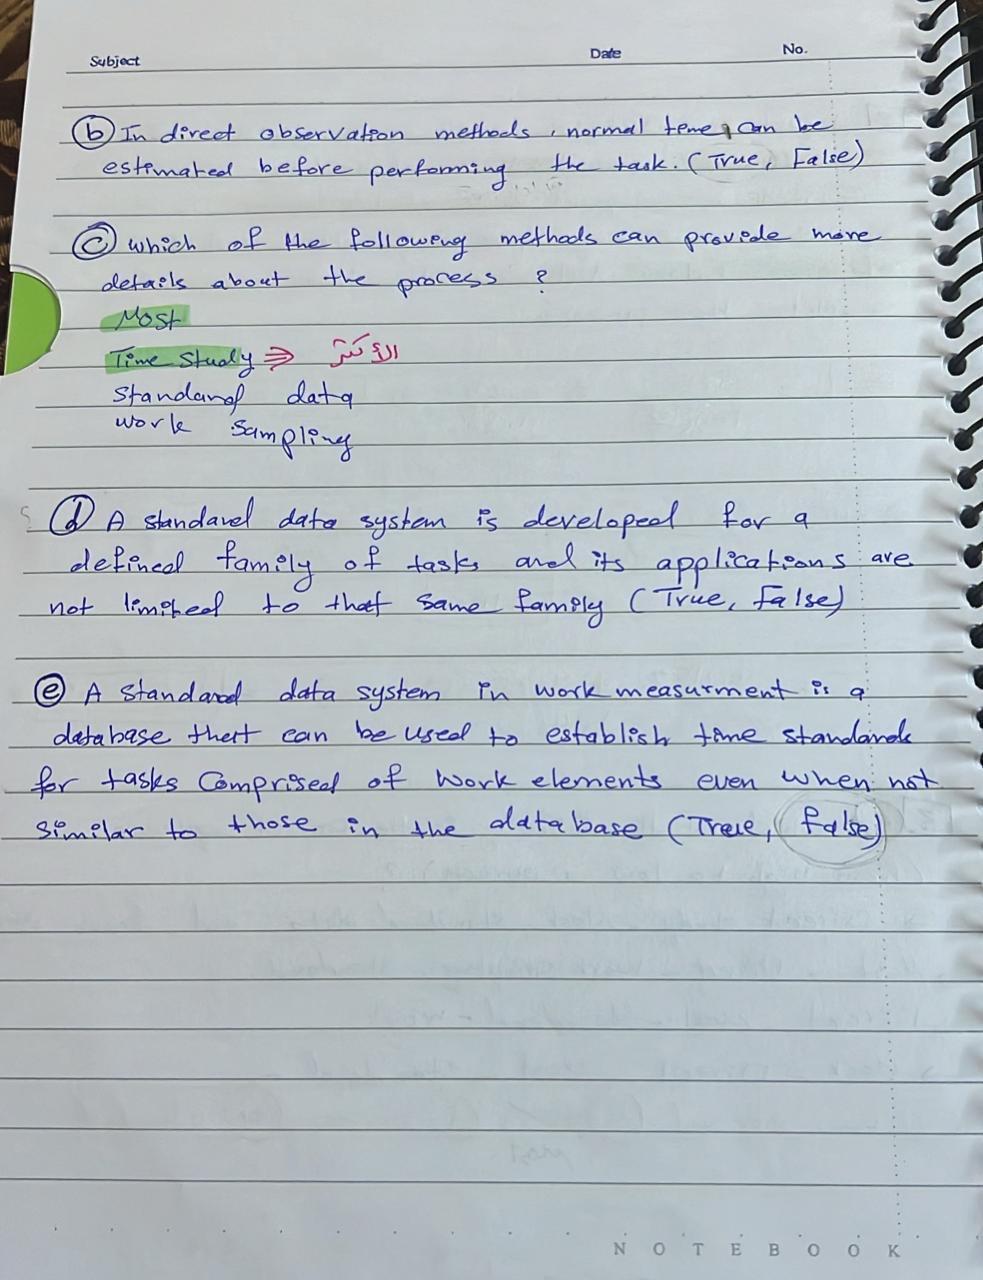 Subject
Date
No.
b In direct observation methods, normal time can be
estimated before performing the task. (True, False)
c which of the following methods can provide more
details about the process ?
Most
Time Study ⇒ الأكثر
Standard data
work Sampling
d A standard data system is developed for a
defined family of tasks and its applications are
not limited to that same family (True, False)
e A standard data system in work measurment is a
database that can be used to establish time standards
for tasks Comprised of work elements even when not
similar to those in the database (True, false)
NOTEBOOK